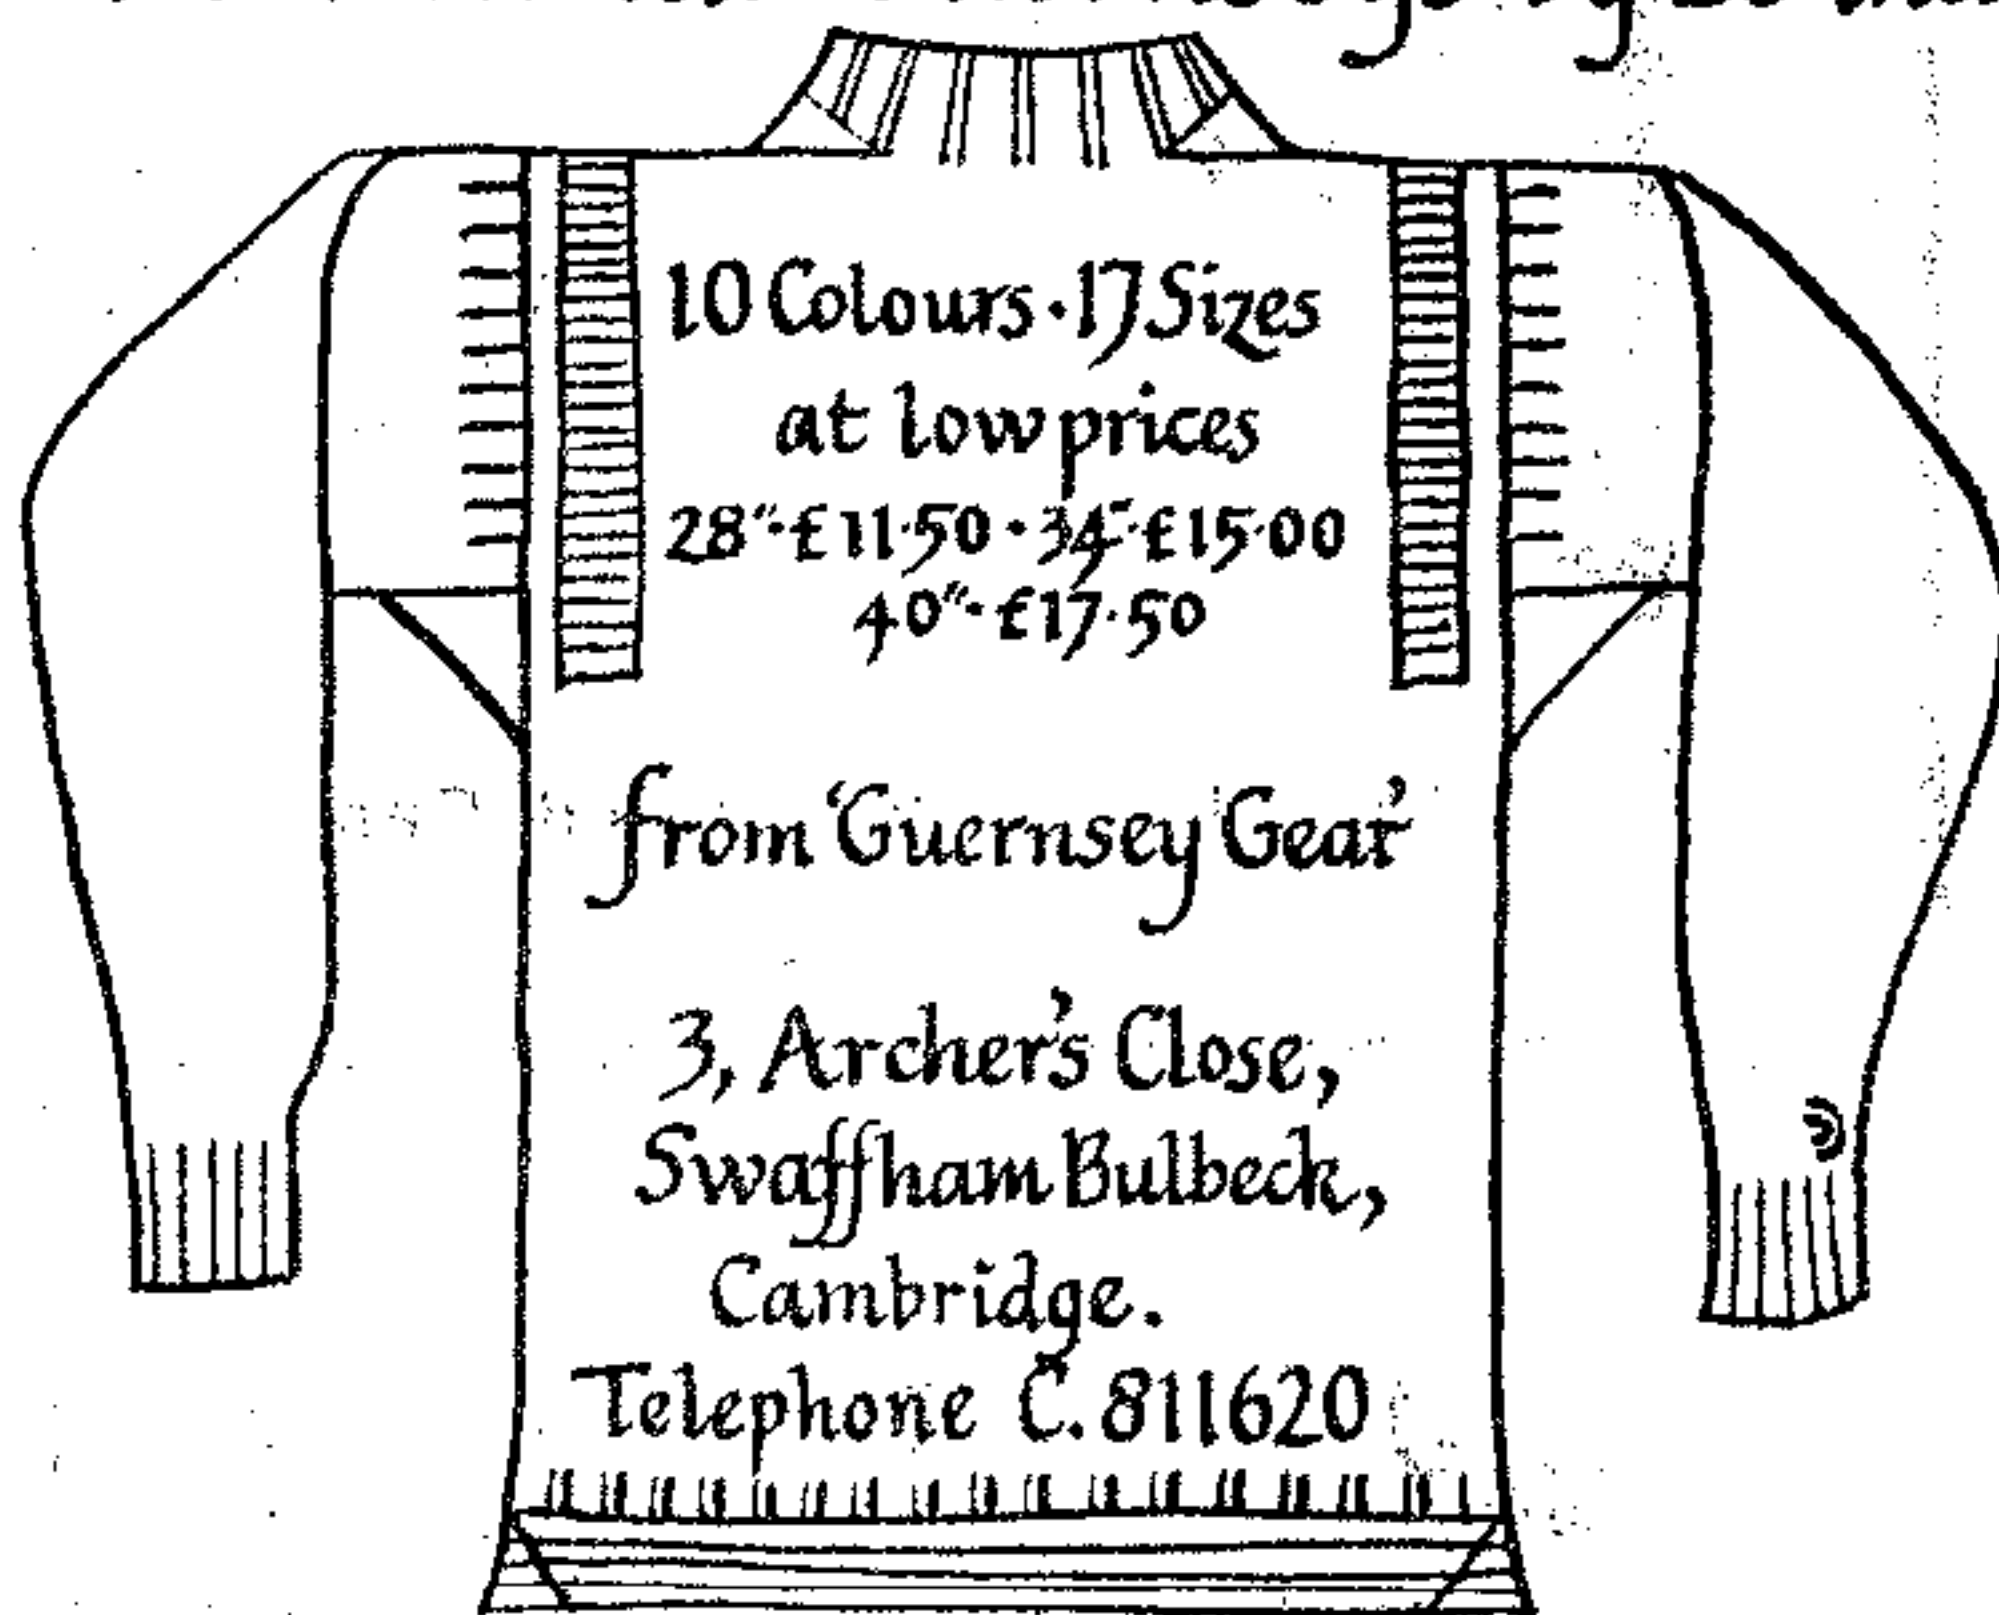 10 Colours · 17 Sizes
at low prices
28"·£11·50 · 34"·£15·00
40"·£17·50
from 'Guernsey Gear'
3, Archer's Close,
Swaffham Bulbeck,
Cambridge.
Telephone C. 811620